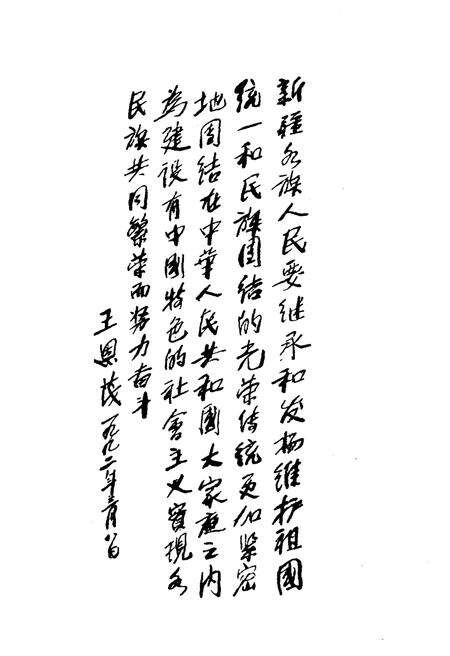 新疆各族人民要继承和发扬维护祖國
统一和民族团结的光荣传统更加紧密
地团结在中華人民共和國大家庭之内
為建设有中國特色的社會主义實現各
民族共同繁荣而努力奋斗
王恩茂 一九九二年三月八日